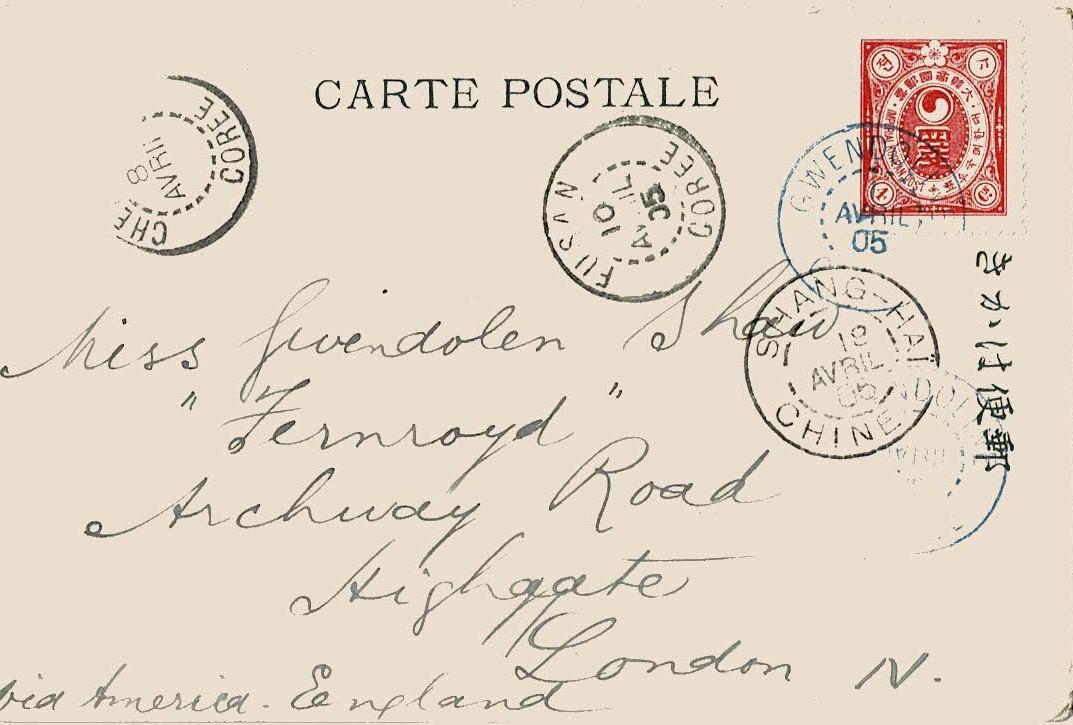 CARTE POSTALE
CHE
COREE
8
AVRIL
FUSAN
COREE
10
AVRIL
05
AVRIL
05
きかは便郵
SHANG-HAÏ
AVRIL
05
CHINE
Miss Gwendolen Shaw
"Fernroyd"
Archway Road
Highgate
London N.
via America. England